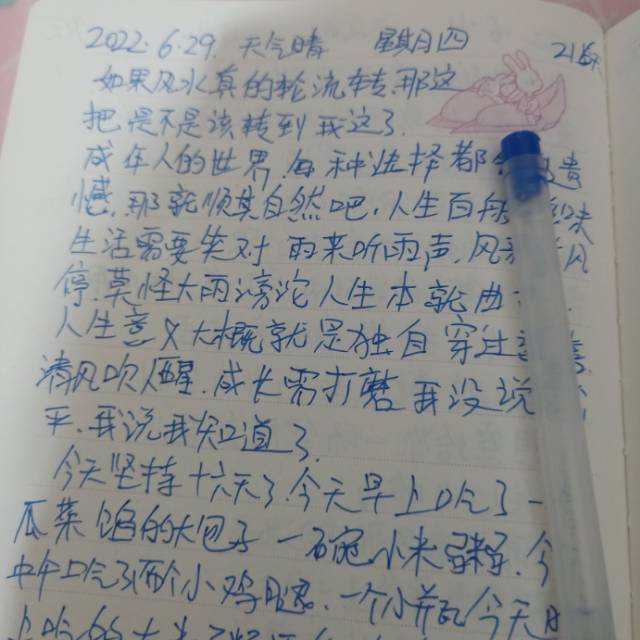 2022.6.29 天气晴 星期四 215
如果风水真的轮流转,那这
把是不是该转到我这了.
成年人的世界,每种选择都 遗
憾,那就顺其自然吧,人生百
生活需要先对 雨来听雨声,风 风
停.莫怪大雨滂沱人生本就曲
人生意义大概就是独自穿过
清风吹人醒.成长需打磨 我没说
平.我说我知道了.
今天坚持十六天了.今天早上吃了一
瓜菜馅的大包子 一碗小米粥 今
中午吃了两个小鸡腿. 一个小 今天